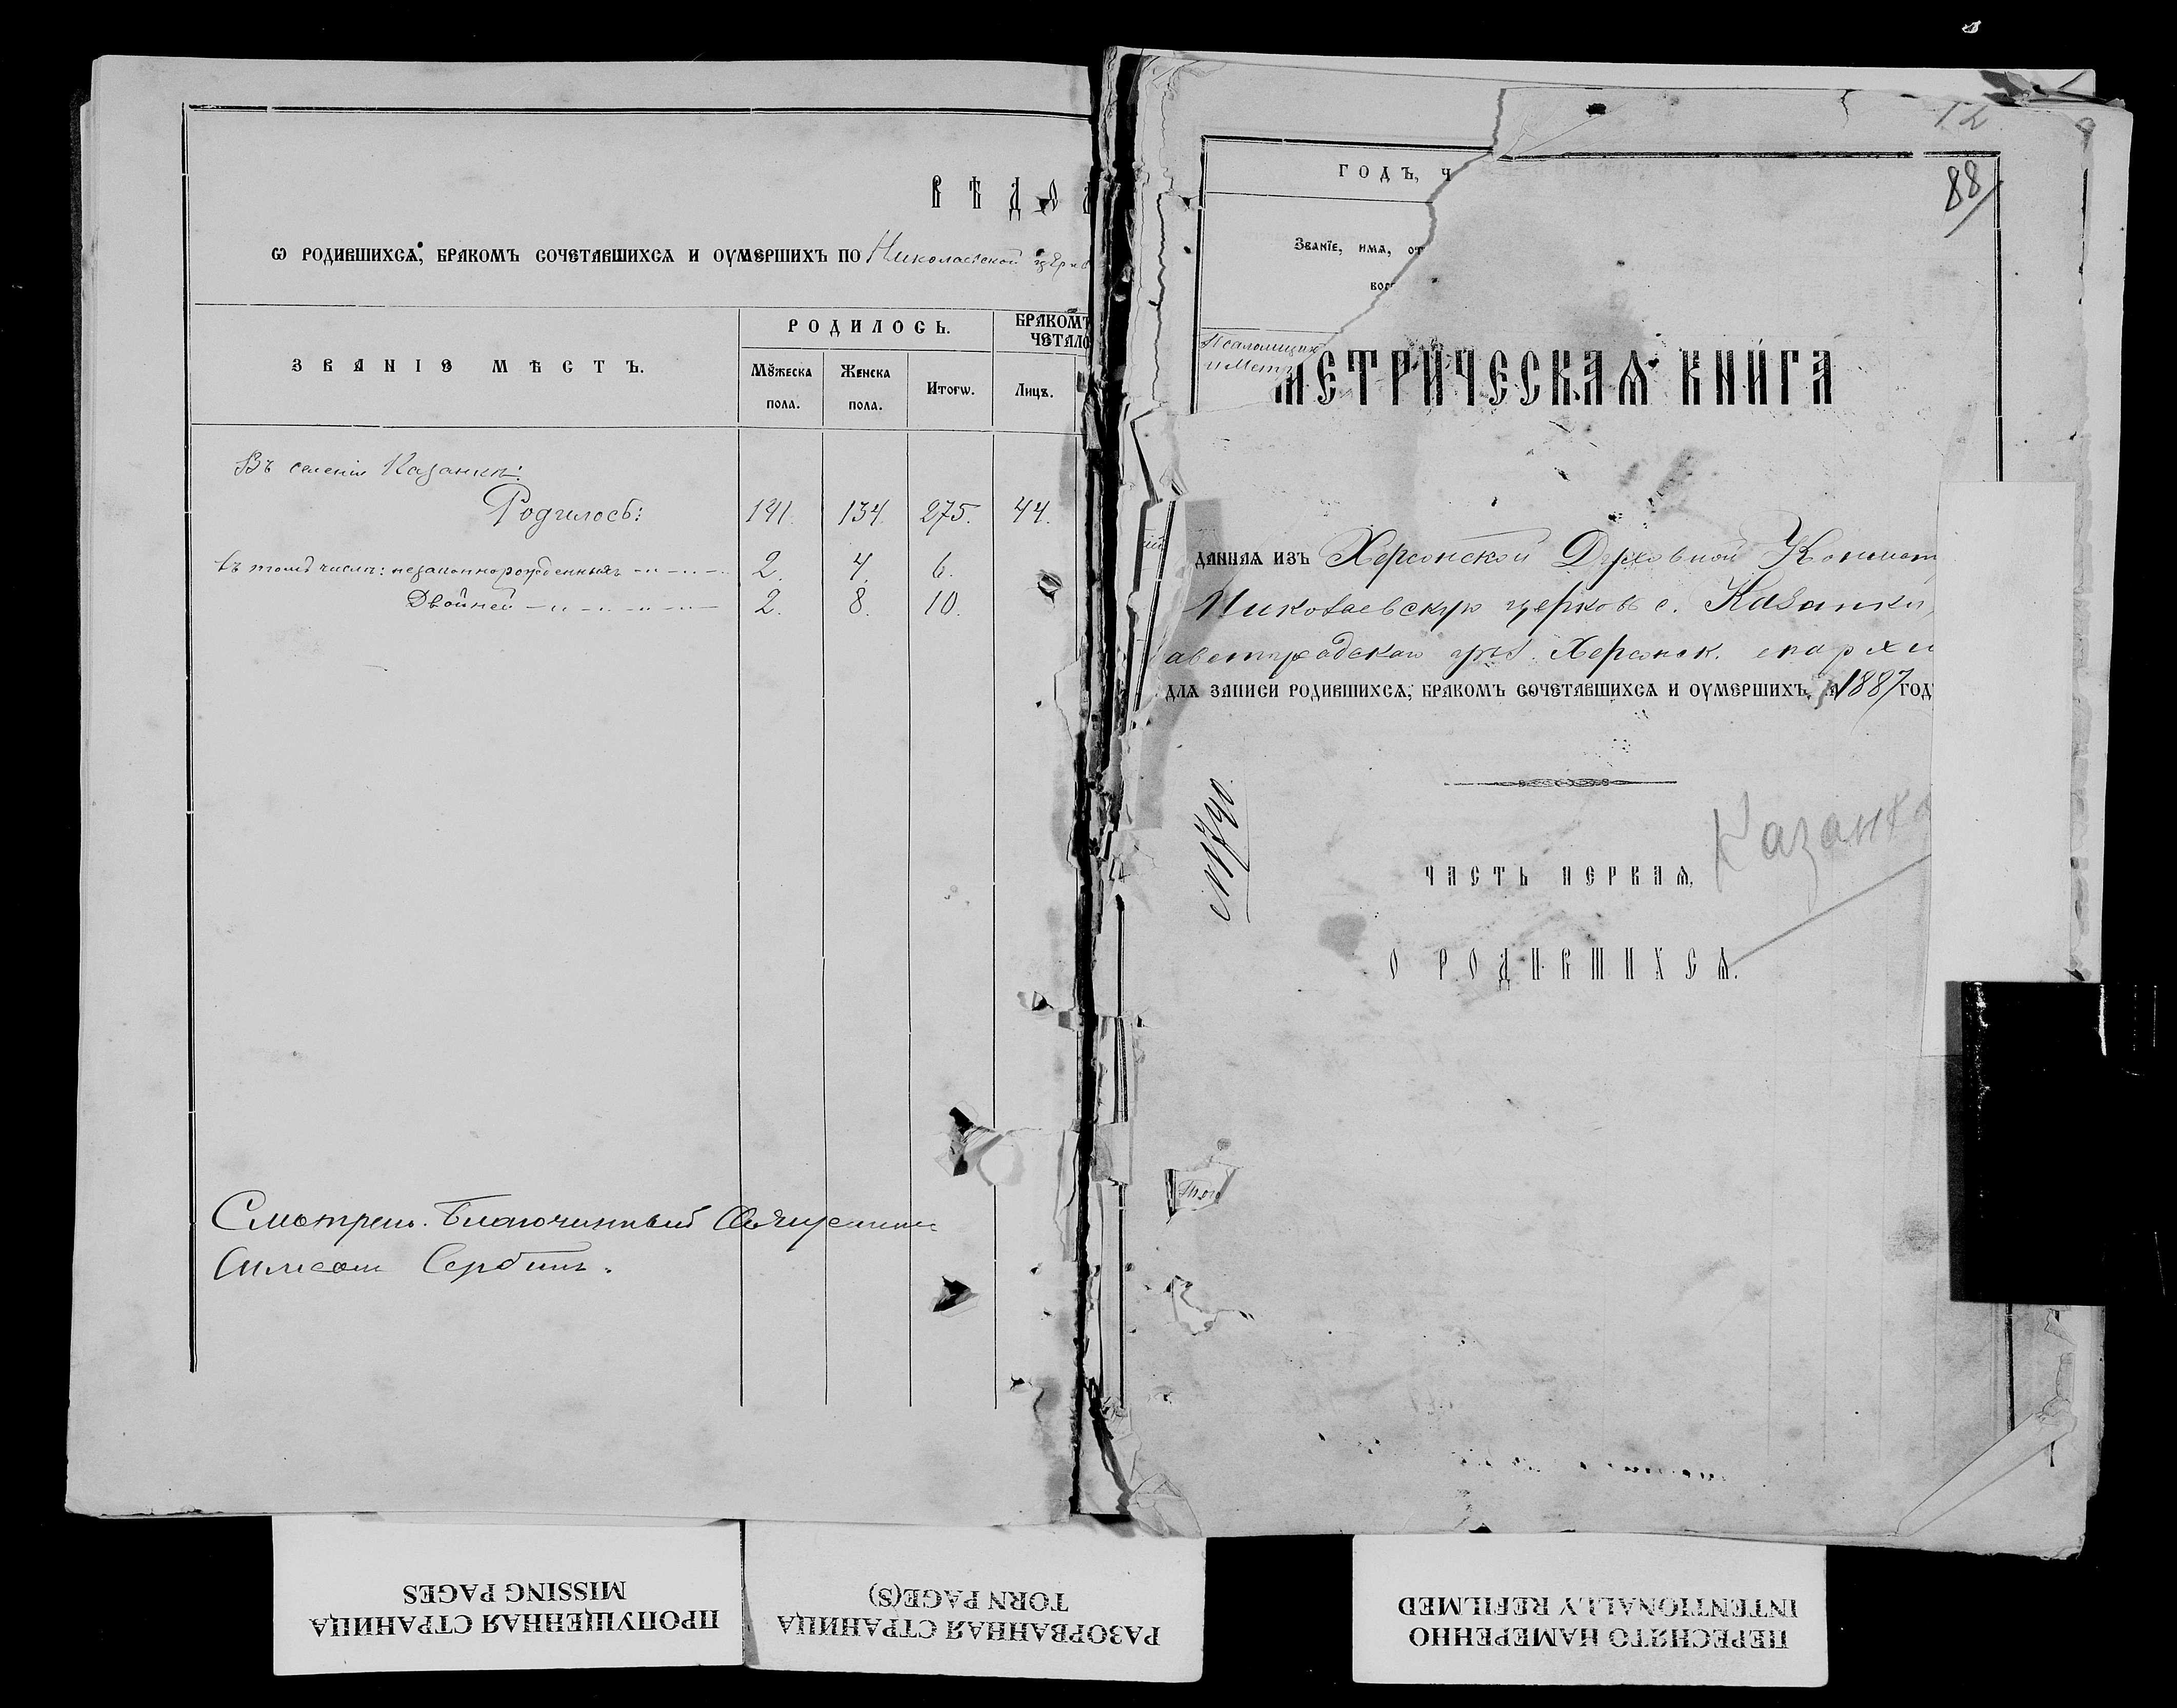 ВѢДО
Ѡ РОДИВШИХСѦ, БРАКОМЪ СОЧЕТАВШИХСѦ И ОУМЕРШИХЪ ПО Николаевской церкв
ЗВАНІЕ МѢСТЪ.
РОДИЛОСЬ.
БРАКОМЪ
ЧЕТАЛО
Мꙋжеска пола.
Женска пола.
Итогѡ.
Лицъ.
Въ селеніи Казанкѣ:
Родилось: 141. 134. 275. 44.
въ томъ числѣ: незаконнорожденныхъ 2. 4. 6.
Двойней 2. 8. 10.
Смотрѣлъ Благочинный Священникъ
Сербинъ.
12
88
ГОДЪ, Ч
Званїе, имѧ, от
вос
Псаломщик
МЕТРИЧЕСКАѦ КНИГА
ДАННАѦ ИЗЪ Херсонской Духовной Консист
Николаевскую церковь с. Казанки,
Херсонск. епархи
ДЛѦ ЗАПИСИ РОДИВШИХСѦ, БРАКОМЪ СОЧЕТАВШИХСѦ И ОУМЕРШИХЪ, 1887 ГОД
№1740.
Казанка
ЧАСТЬ ПЕРВАѦ,
О РОДИВШИХСѦ.
ПРОПУЩЕННАЯ СТРАНИЦА
MISSING PAGES
РАЗОРВАННАЯ СТРАНИЦА
TORN PAGE(S)
ПЕРЕСНЯТО НАМЕРЕННО
INTENTIONALLY REFILMED